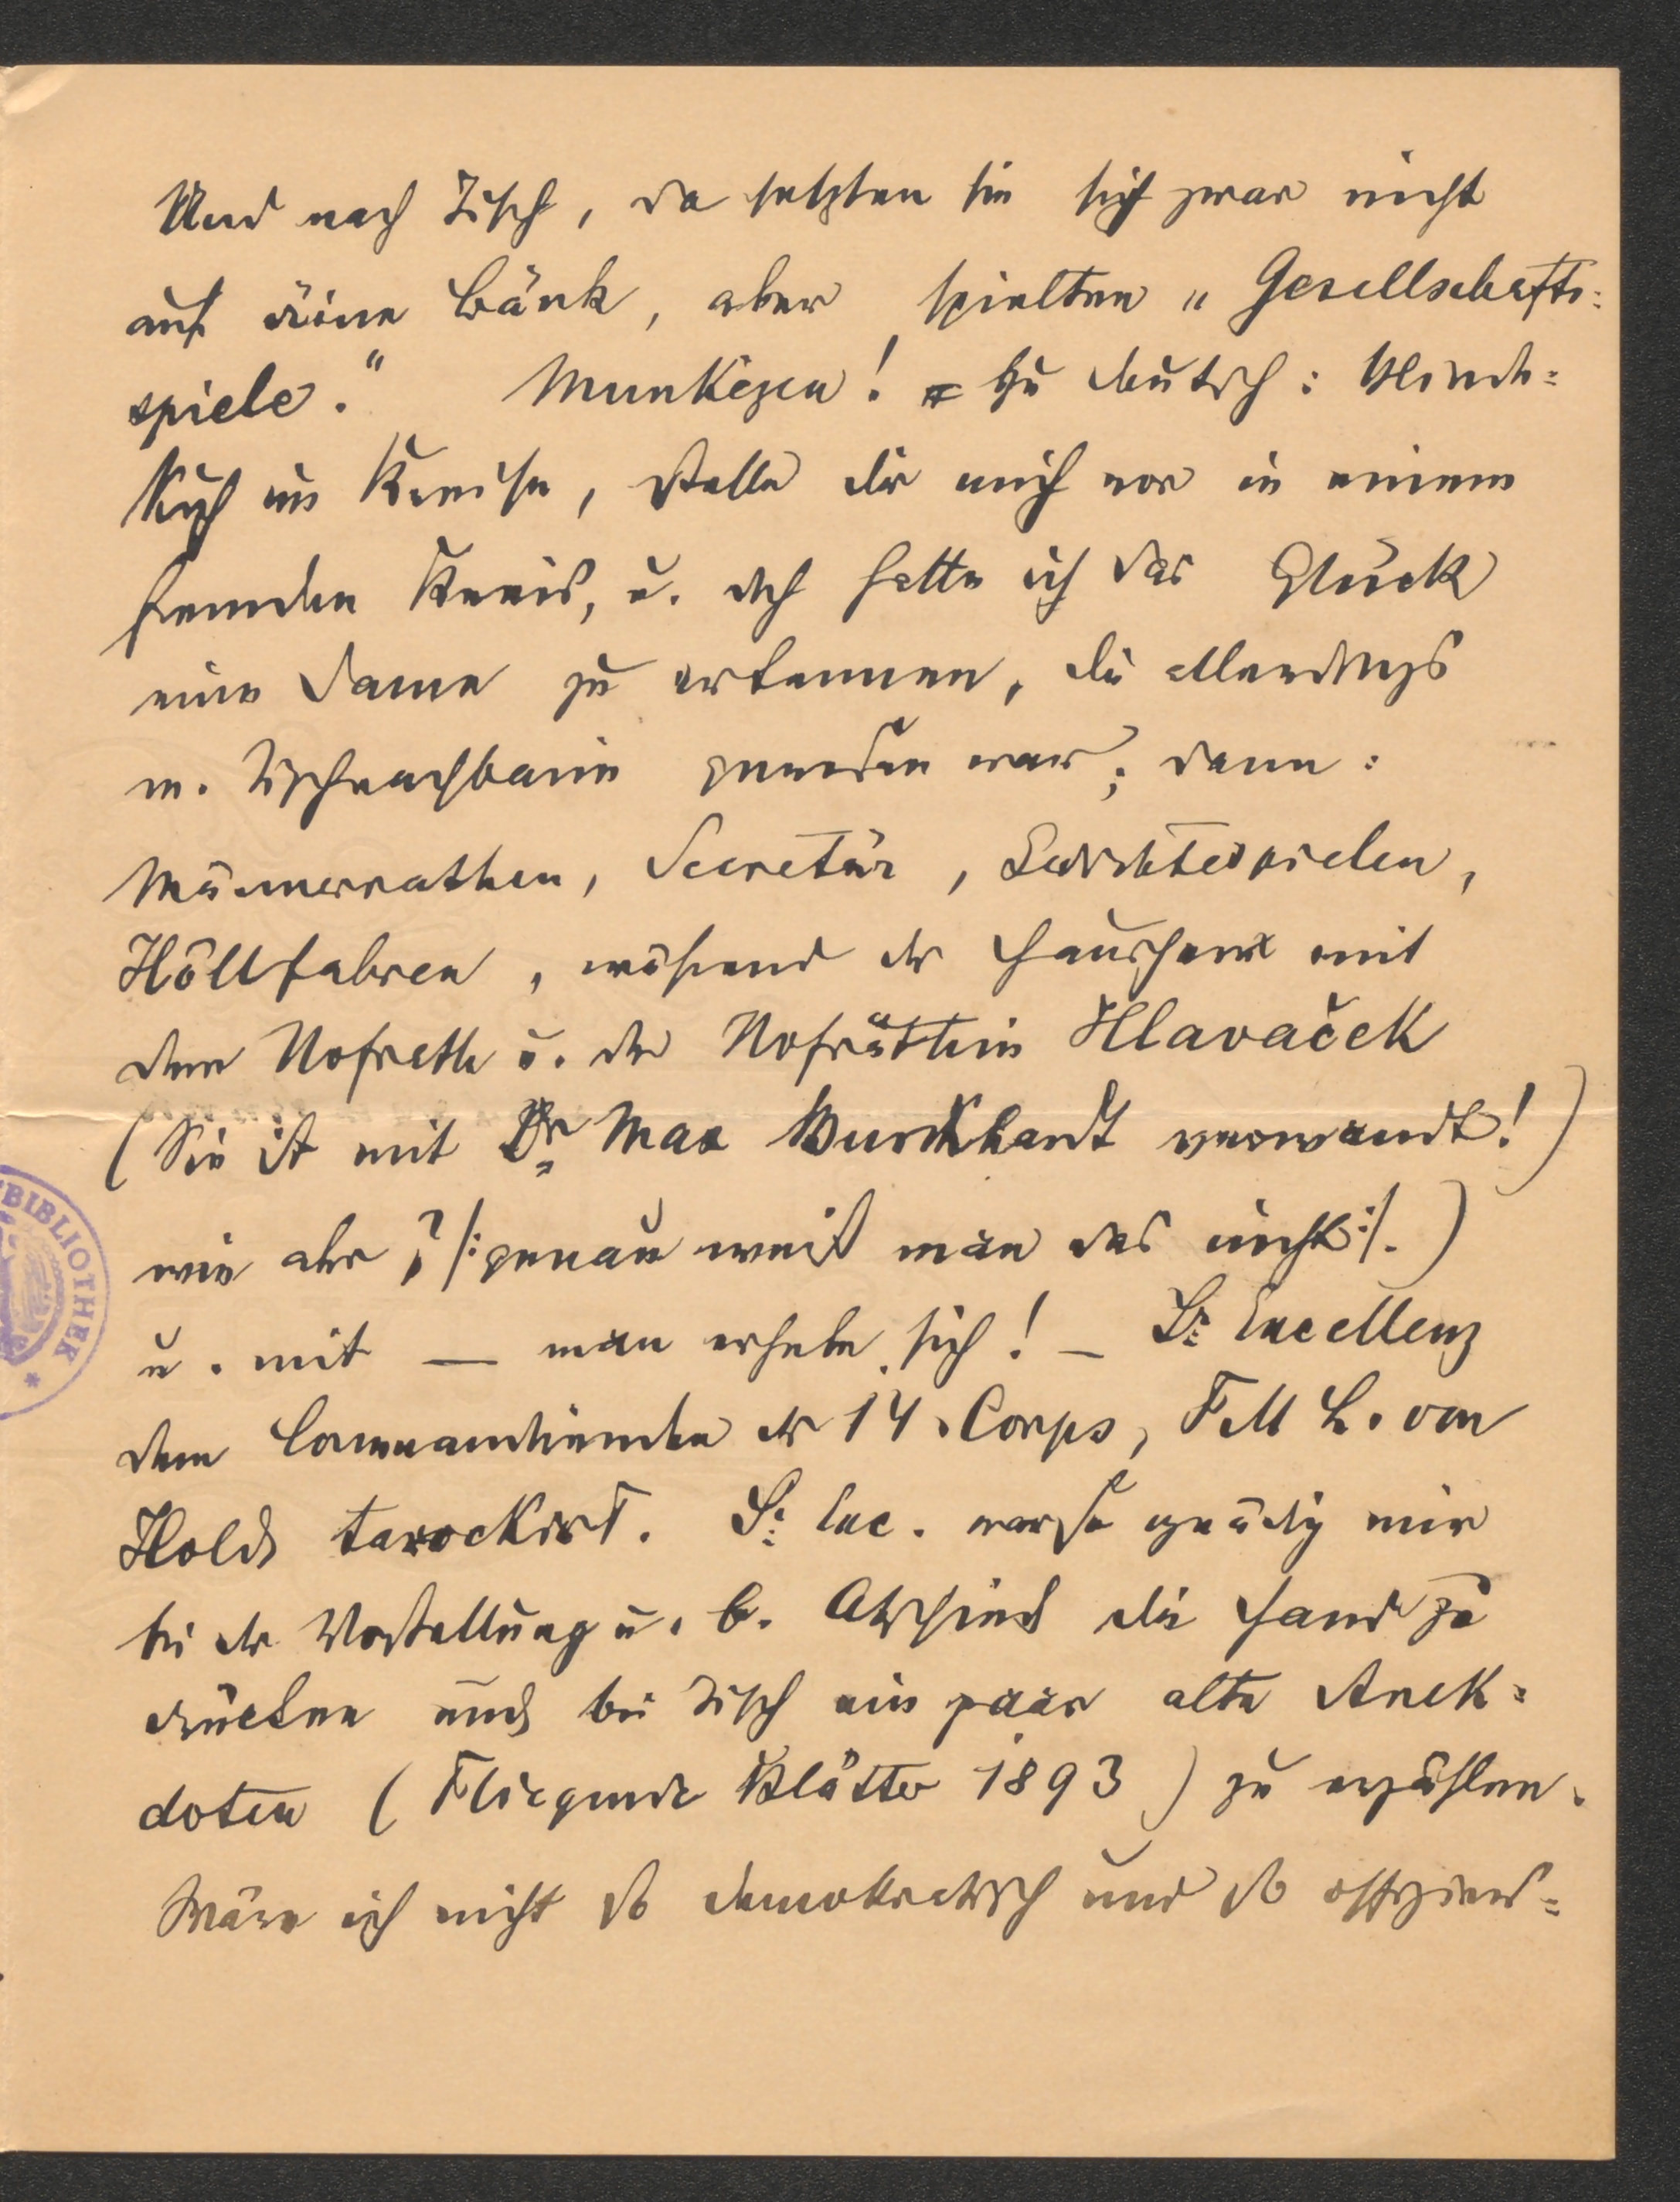 Und nach Tisch, da setzten sie sich zwar nicht
auf deine Bänk, aber spielten "Gesellschafts=
spiele." Munkezen! Zu deutsch: Blinde=
Kuh im Kreise, stelle dir mich vor in einem
fremden Kreis, u. doch hatte ich das Glück
eine Dame zu erkennen, die allerdings
m. Tischnachbarin gewesen war; dann:
Männerrathen, Secretär,
Höllfahren, während der Hausherr mit
dem Hofrath u. der Hofräthin Hlavaček
(Sie ist mit Dr Max Burckhardt verwandt!)
wie aber? /: genau weiß man das nicht :/. )
u. mit — man erhebe sich! — Sr Excellenz
dem Commandirenden des 14. Corps, FML. von
Hold tarockirt. Sr Exc. war so gnädig mir
bei der Vorstellung u. b. Abschied die Hand zu
drücken und bei Tisch ein paar alte Anek=
doten (Fliegende Blätter 1893) zu erzählen.
Wäre ich nicht so demokratisch und so offiziers=
BIBLIOTHEK *